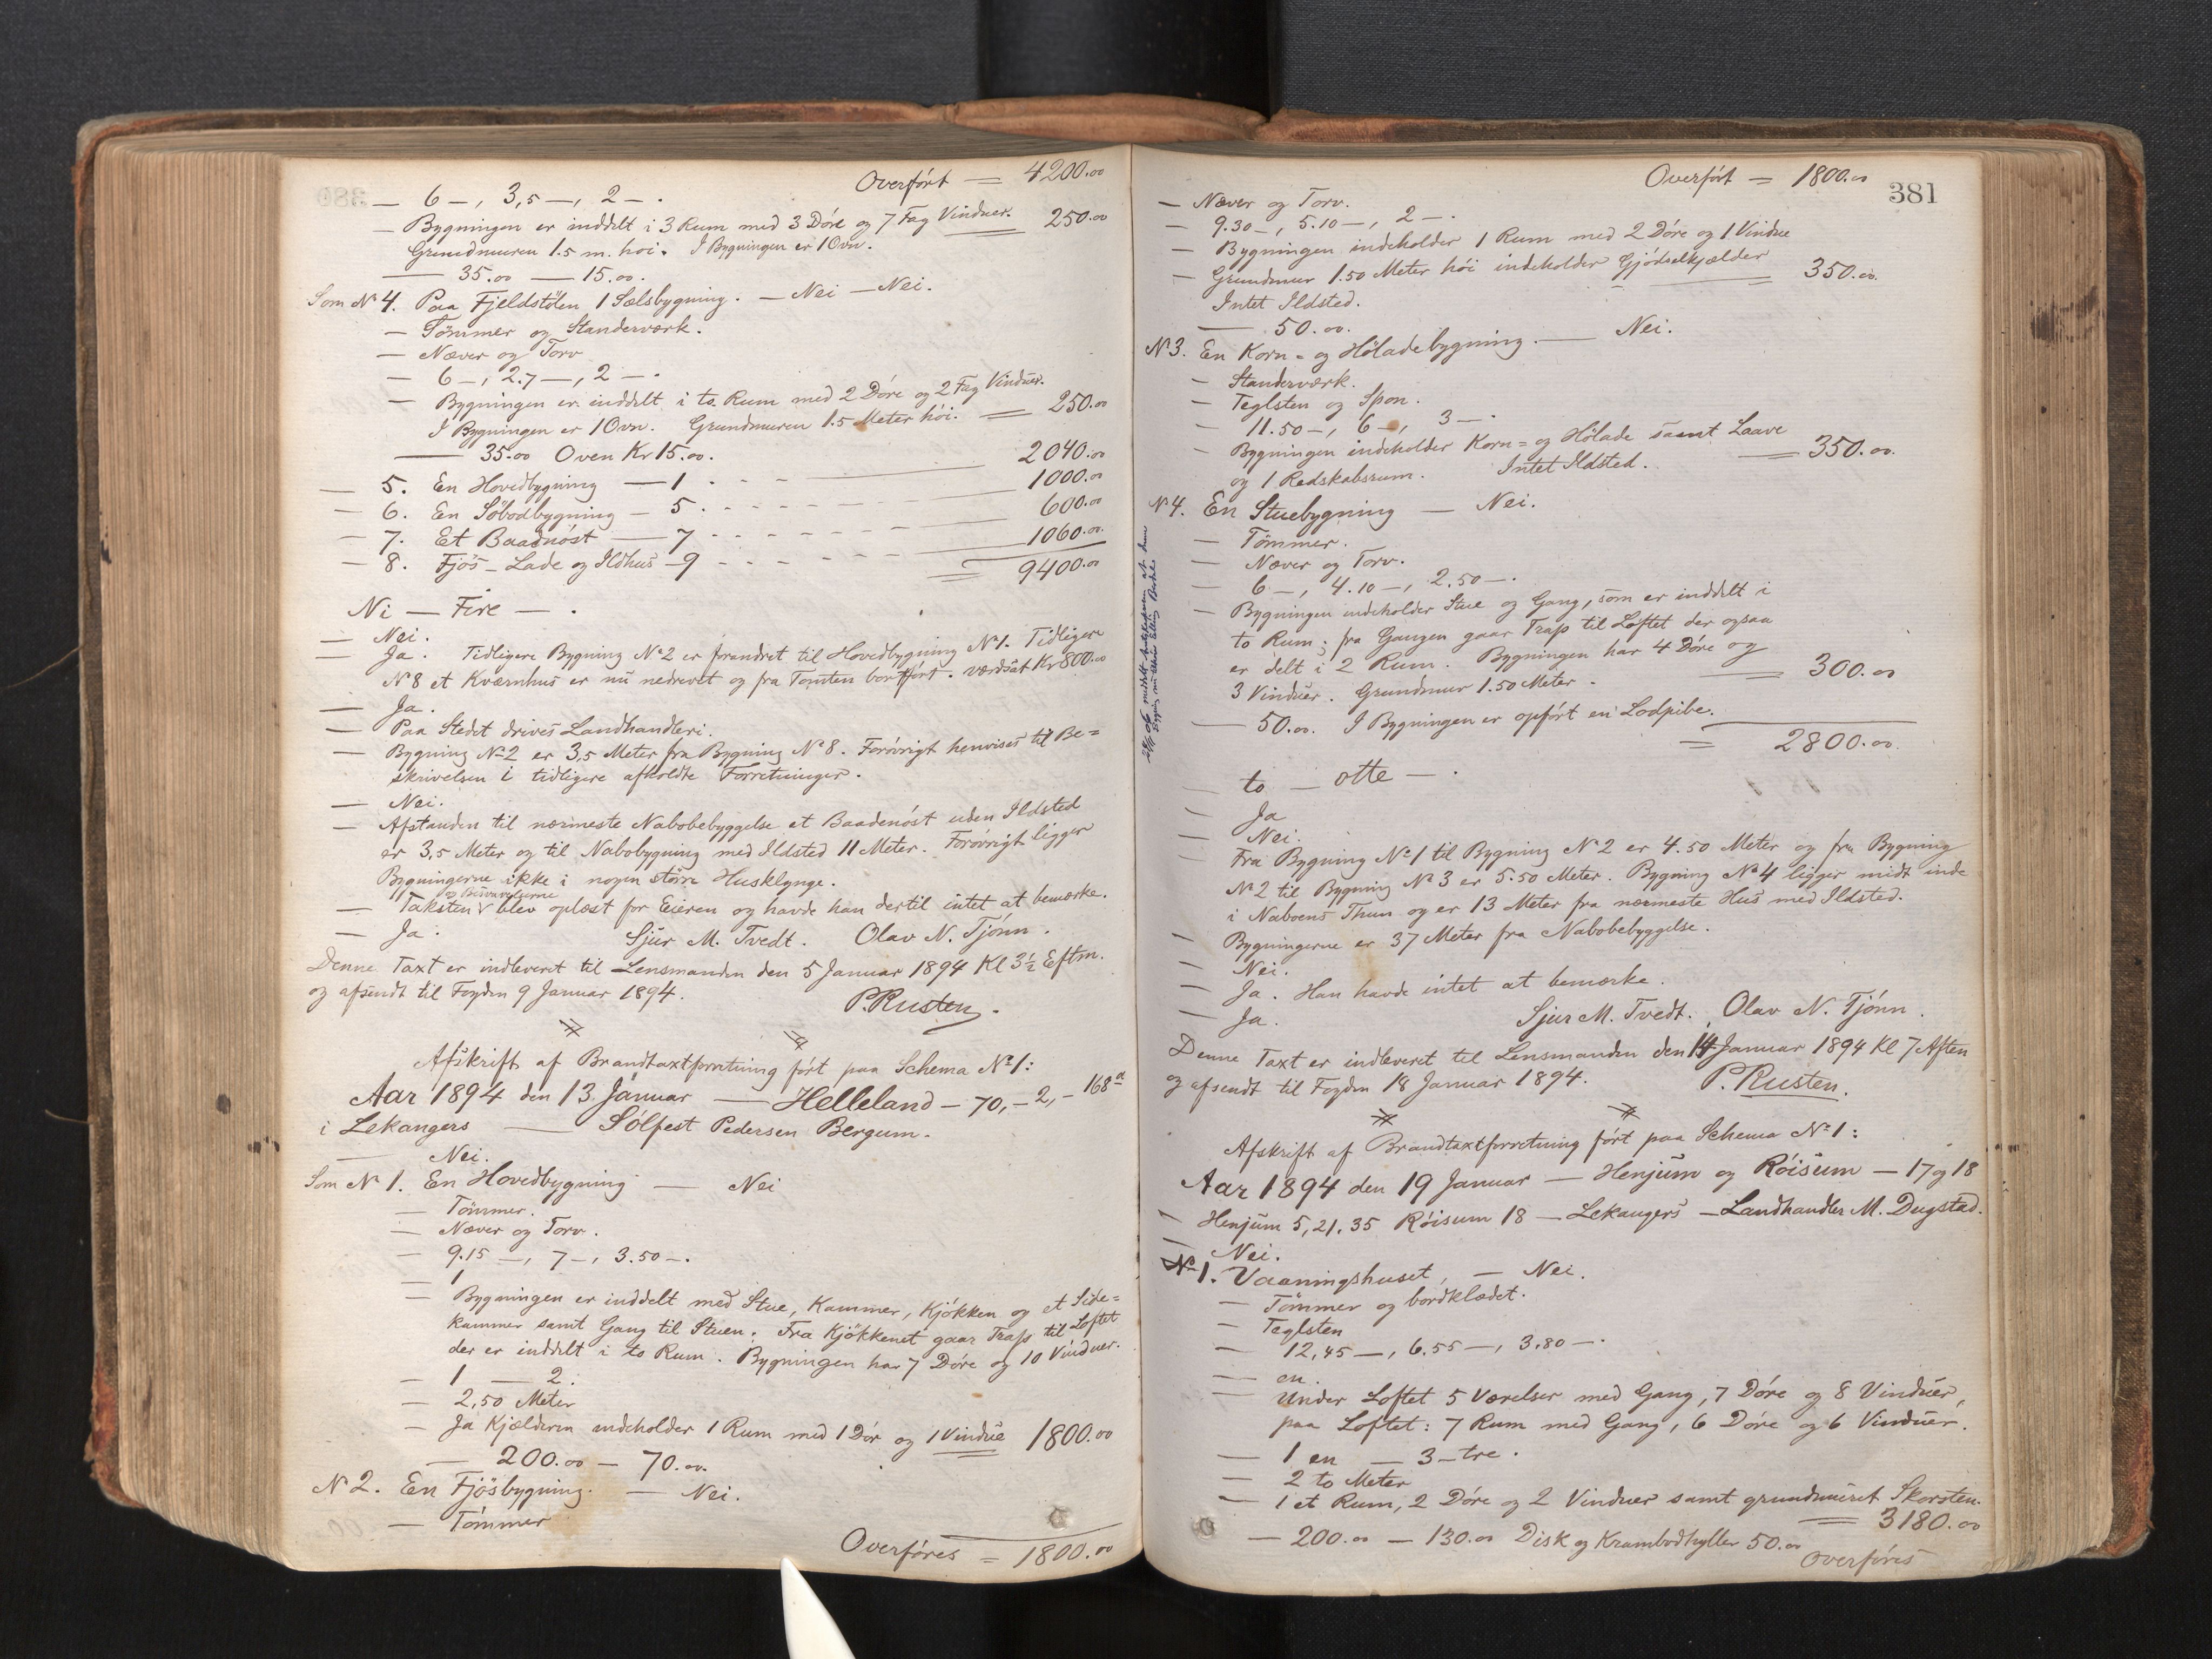 Overført = 4200.00
— 6 —, 3,5 —, 2 — .
— Bygningen er inddelt i 3 Rum med 3 Døre og 7 Fag Vinduer. 250.00
Grundmuren 1.5 m. høi. I Bygningen er 1 Ovn.
— 35.00 — 15.00.
Som No 4. Paa Fjeldstölen 1 Sælsbygning. — Nei — Nei.
— Tömmer og Standerværk.
— Næver og Torv
— 6 —, 2.7 —, 2 — .
— Bygningen er inddelt i to Rum med 2 Døre og 2 Fag Vinduer.
I Bygningen er 1 Ovn. Grundmuren 1.5 Meter høi. = 250.00
— 35.00 Oven Kr 15.00.
2040.00
— 5. En Hovedbygning — 1 . - - 1000.00
— 6. En Söbodbygning — 5 . - - - 600.00
— 7. Et Baadnöst — 7 - - - - 1060.00
— 8. Fjös - Lade og Ildhus - 9 - - - -
= 9400.00
Ni — Fire — .
— Nei.
— Ja. Tidligere Bygning No 2 er forandret til Hovedbygning No 1. Tidligere
No 8 et Kværnhus er nu nedrevet og fra Tomten bortført. værdsat Kr 800.00
— Ja.
— Paa Stedet drives Landhandleri.
— Bygning No 2 er 3,5 Meter fra Bygning No 8. Forøvrigt henvises til Be=
skrivelsen i tidligere afholdte Forretninger.
— Nei.
— Afstanden til nærmeste Nabobebyggelse et Baadenöst uden Ildsted
er 3,5 Meter og til Nabobygning med Ildsted 11 Meter. Forøvrigt ligger
Bygningerne ikke i nogen större Husklynge.
og Besvarelserne
— Taksten v blev oplæst for Eieren og havde han dertil intet at bemærke.
— Ja. Sjur M. Tvedt. Olav N. Tjónn.
Denne Taxt er indleveret til Lensmanden den 5 Januar 1894 Kl 3½ Eftm.
og afsendt til Fogden 9 Januar 1894. P. Rusten.
Afskrift af Brandtaxtforretning ført paa Schema No 1:
Aar 1894 den 13 Januar — Helleland — 70, — 2, — 168 a
i Lekangers — Sölfest Pedersen Bergum.
— Nei.
Som No 1. En Hovedbygning — Nei
— Tömmer.
— Næver og Torv.
— 9.15 —, 7 —, 3.50 — .
— 1
— Bygningen er inddelt med Stue, Kammer, Kjökken og et Side=
kammer samt Gang til Stuen. Fra Kjökkenet gaar Trap til Loftet
der er inddelt i to Rum. Bygningen har 7 Døre og 10 Vinduer.
— 1 — 2.
— 2,50 Meter
— Ja Kjælderen indeholder 1 Rum med 1 Dør og 1 Vindue 1800.00
— 200.00 — 70.00.
No 2. En Fjösbygning. — Nei.
— Tömmer
Overføres = 1800.00
Overført = 1800.00
381
— Næver og Torv.
— 9.30 —, 5.10 —, 2 — .
— Bygningen indeholder 1 Rum med 2 Døre og 1 Vindue
— Grundmur 1.50 Meter høi indeholder Gjødselkjælder 350.00.
Intet Ildsted.
— 50.00.
No 3. En Korn= og Høladebygning. — Nei.
— Standerværk.
— Teglsten og Spon.
— 11.50 —, 6 —, 3 — .
— Bygningen indeholder Korn= og Hølade samt Laave = 350.00.
og 1 Redskabsrum. Intet Ildsted.
No 4. En Stuebygning — Nei.
— Tömmer.
— Næver og Torv.
— 6 —, 4.10 —, 2.50 — .
— Bygningen indeholder Stue og Gang, som er inddelt i
to Rum; fra Gangen gaar Trap til Loftet der ogsaa
er delt i 2 Rum. Bygningen har 4 Døre og
3 Vinduer. Grundmur 1.50 Meter. = 300.00
— 50.00. I Bygningen er opført en Lodpibe.
= 2800.00.
— to — otte — .
— Ja
— Nei.
— Fra Bygning No 1 til Bygning No 2 er 4.50 Meter og fra Bygning
No 2 til Bygning No 3 er 5.50 Meter. Bygning No 4 ligger midt inde
i Naboens Thun og er 13 Meter fra nærmeste Hus med Ildsted.
— Bygningerne er 37 Meter fra Nabobebyggelse.
— Nei.
— Ja. Han havde intet at bemærke.
— Ja. Sjur M. Tvedt. Olav N. Tjónn.
Denne Taxt er indleveret til Lensmanden den 14 Januar 1894 Kl 7 Aften
og afsendt til Fogden 18 Januar 1894. P. Rusten.
Afskrift af Brandtaxtforretning ført paa Schema No 1:
Aar 1894 den 19 Januar — Henjum og Röisum — 17 og 18
— Henjum 5, 21. 35 Röisum 18 — Lekangers — Landhandler M. Dugstad.
— Nei.
No 1. Vaaningshuset, — Nei.
— Tömmer og bordklædet.
— Teglsten
— 12,45 —, 6.55 —, 3.80 — .
— en.
— Under Loftet 5 Værelser med Gang, 7 Døre og 8 Vinduer,
paa Loftet: 7 Rum med Gang, 6 Døre og 6 Vinduer.
— 1 en — 3 - tre .
— 2 to Meter
— 1 et Rum, 2 Døre og 2 Vinduer samt grundmuret Skorsten.
= 3180.00
— 200.00 — 130.00 Disk og Krambodhyller 50.00
Overføres